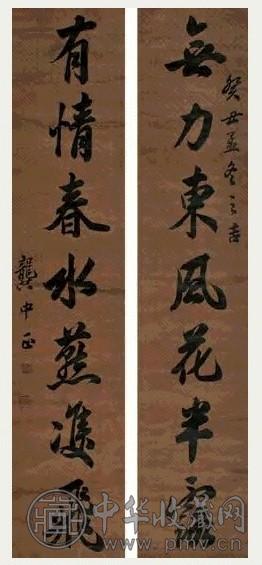 癸丑孟冬之吉
無力東風花半
有情春水燕雙飛
龔中正
中华收藏网
www.pmv.cn